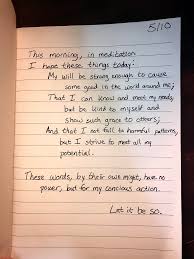 5/10
This morning, in meditation
I hope these things today:
My will be strong enough to cause
some good in the world around me;
That I can know and meet my needs,
but be kind to myself and
show such grace to others;
And that I not fall to harmful patterns,
but I strive to meet all my
potential.
These words, by their own might, have no
power, but for my concious action.
Let it be so.